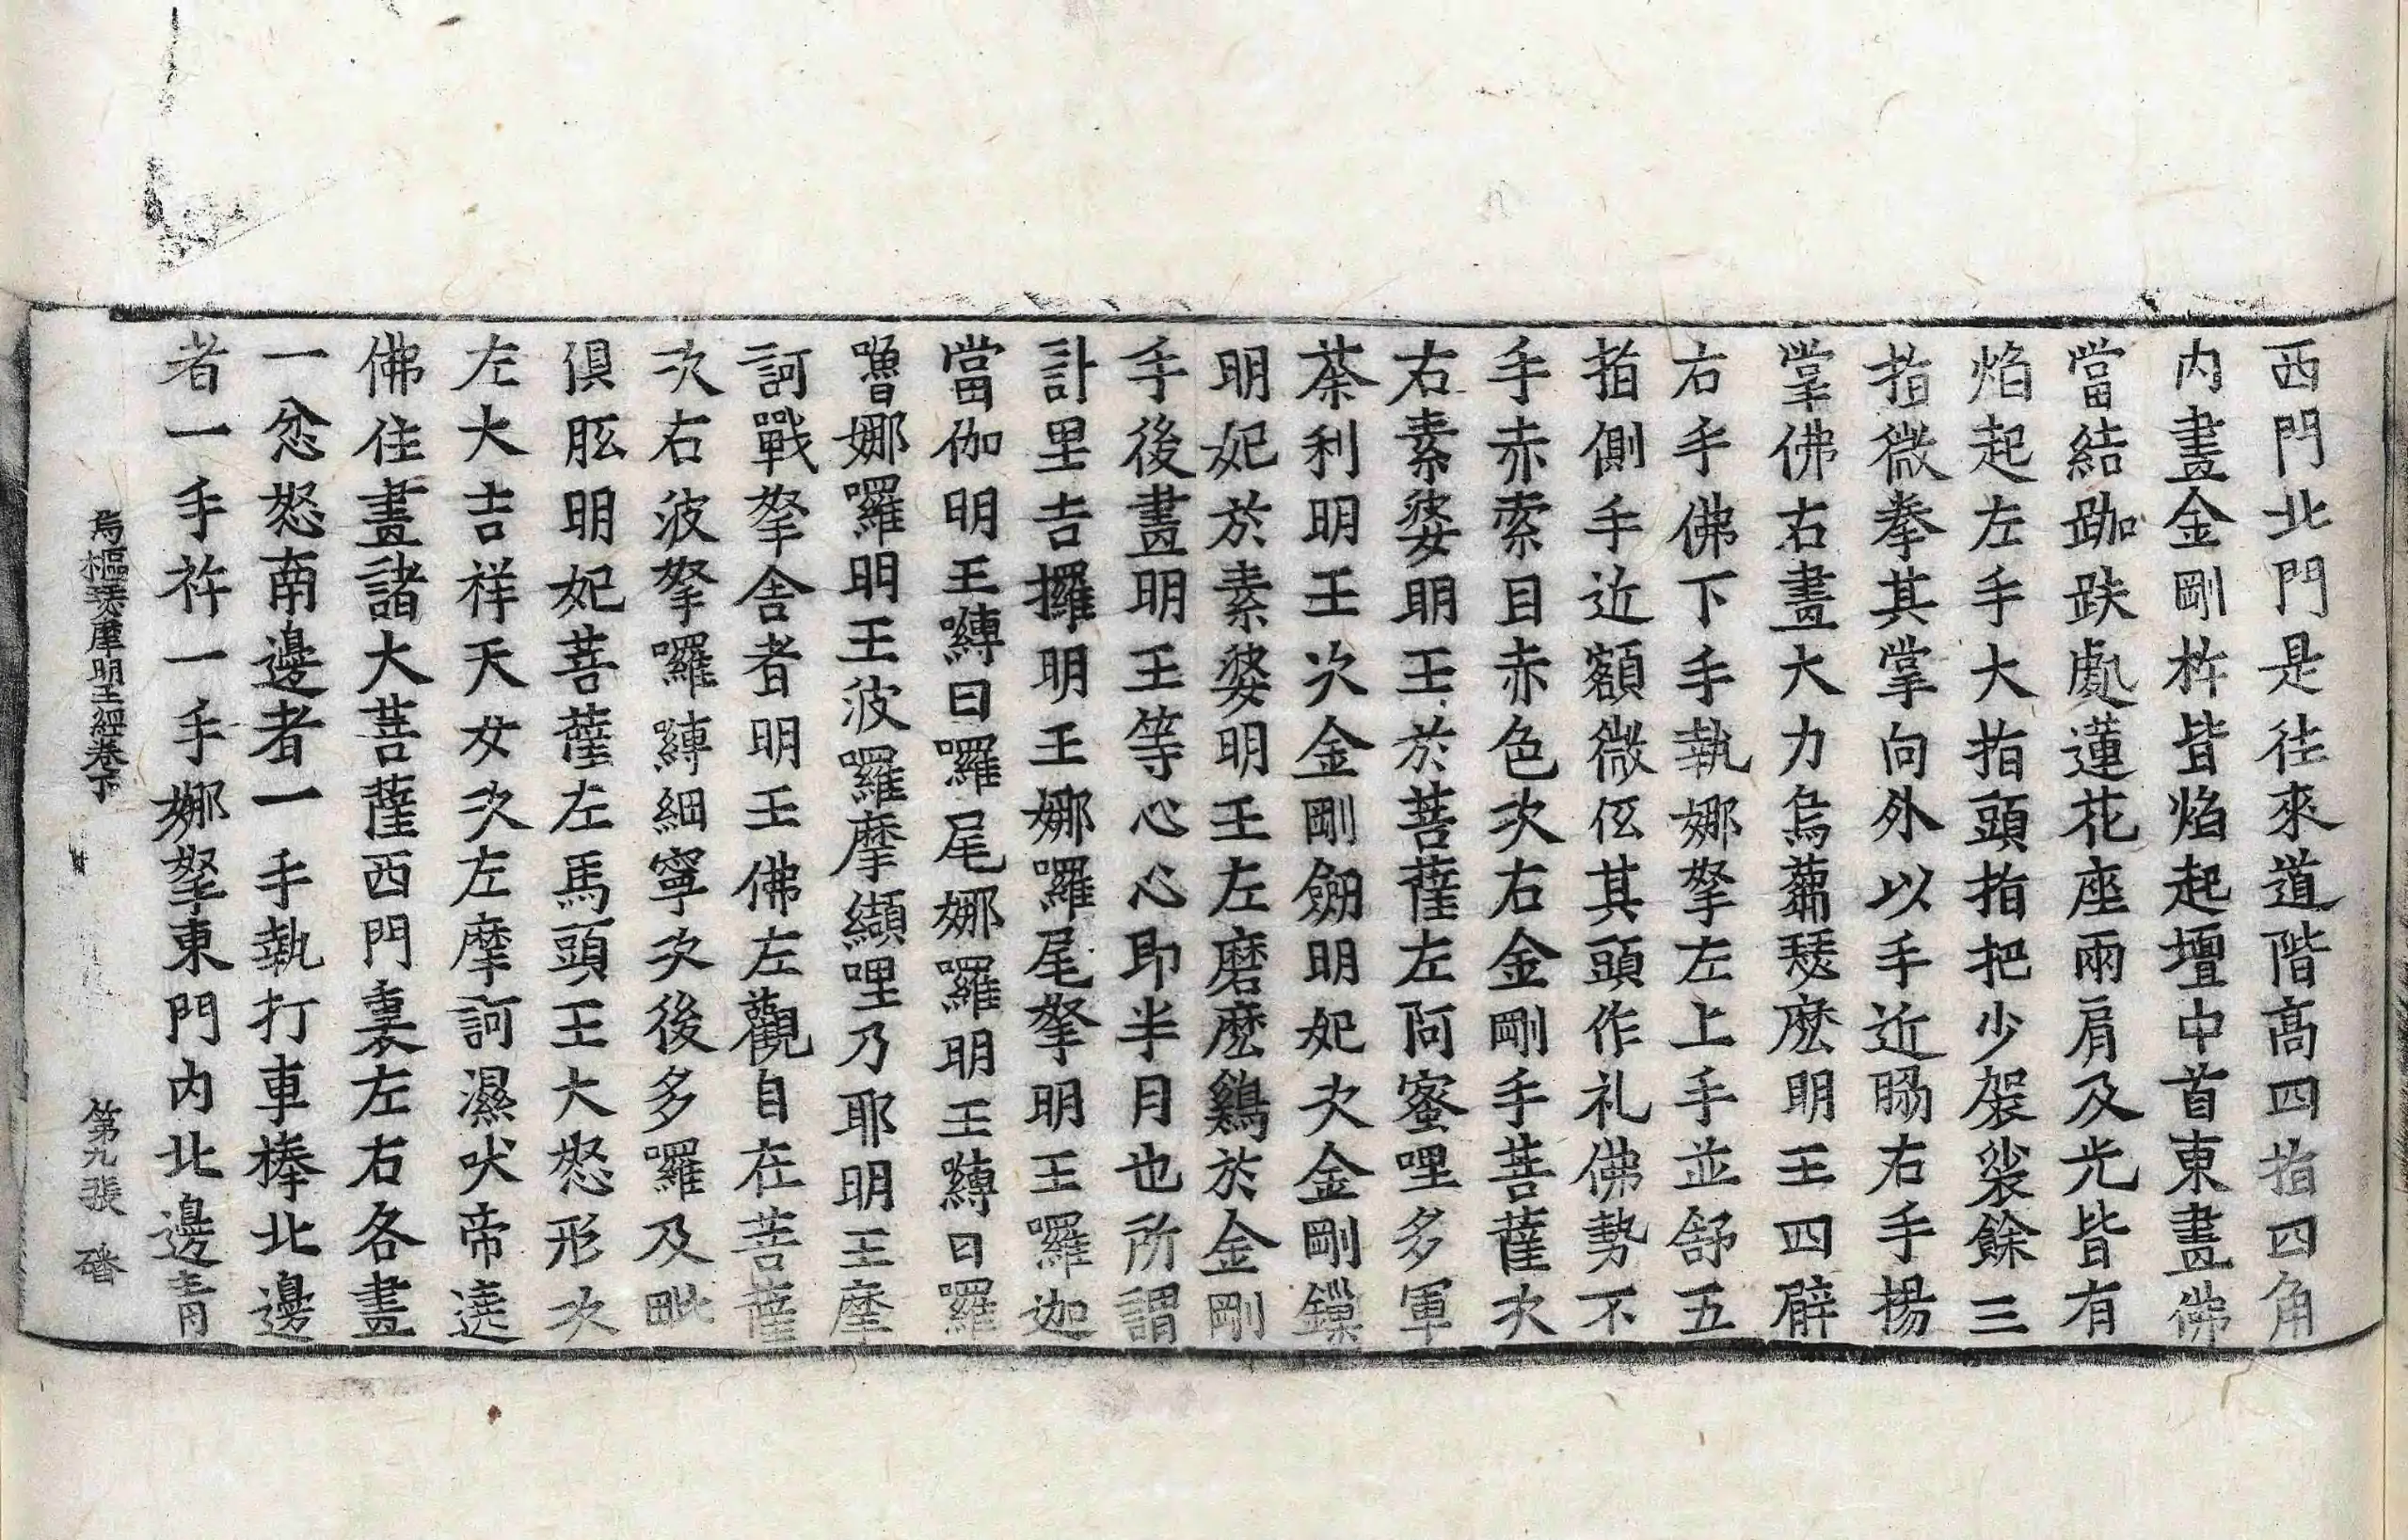 西門北門是往來道階高四指四角
内畫金剛杵皆焰起壇中首東畫佛
當結跏趺處蓮花座兩肩及光皆有
焰起左手大指頭指把少袈裟餘三
指微拳其掌向外以手近腸右手揚
掌佛右畫大力烏蒭瑟麽明王四臂
右手佛下手執娜拏左上手並舒五
指側手近額微低其頭作礼佛勢不
手赤索目赤色次右金剛手菩薩次
右素婆明王於菩薩左阿蜜哩多軍
荼利明王次金剛劒明妃次金剛鏁
明妃於素婆明王左磨麽鷄於金剛
手後畫明王等心心即半月也所謂
計里吉攞明王娜囉尾拏明王羅迦
當伽明王嚩曰囉尾娜囉明王嚩日羅
嚕娜囉明王波囉摩纈哩乃耶明王摩
訶戰拏舍者明王佛左觀自在菩薩
次右波拏囉縛細寧次後多囉及毗
俱胝明妃菩薩左馬頭王大怒形次
左大吉祥天女次左摩訶濕吠帝遶
佛往畫諸大菩薩西門裏左右各畫
一忿怒南邊者一手執打車棒北邊
者一手杵一手娜拏東門内北邊青
烏樞瑟摩明王經卷下 第九張 䃮